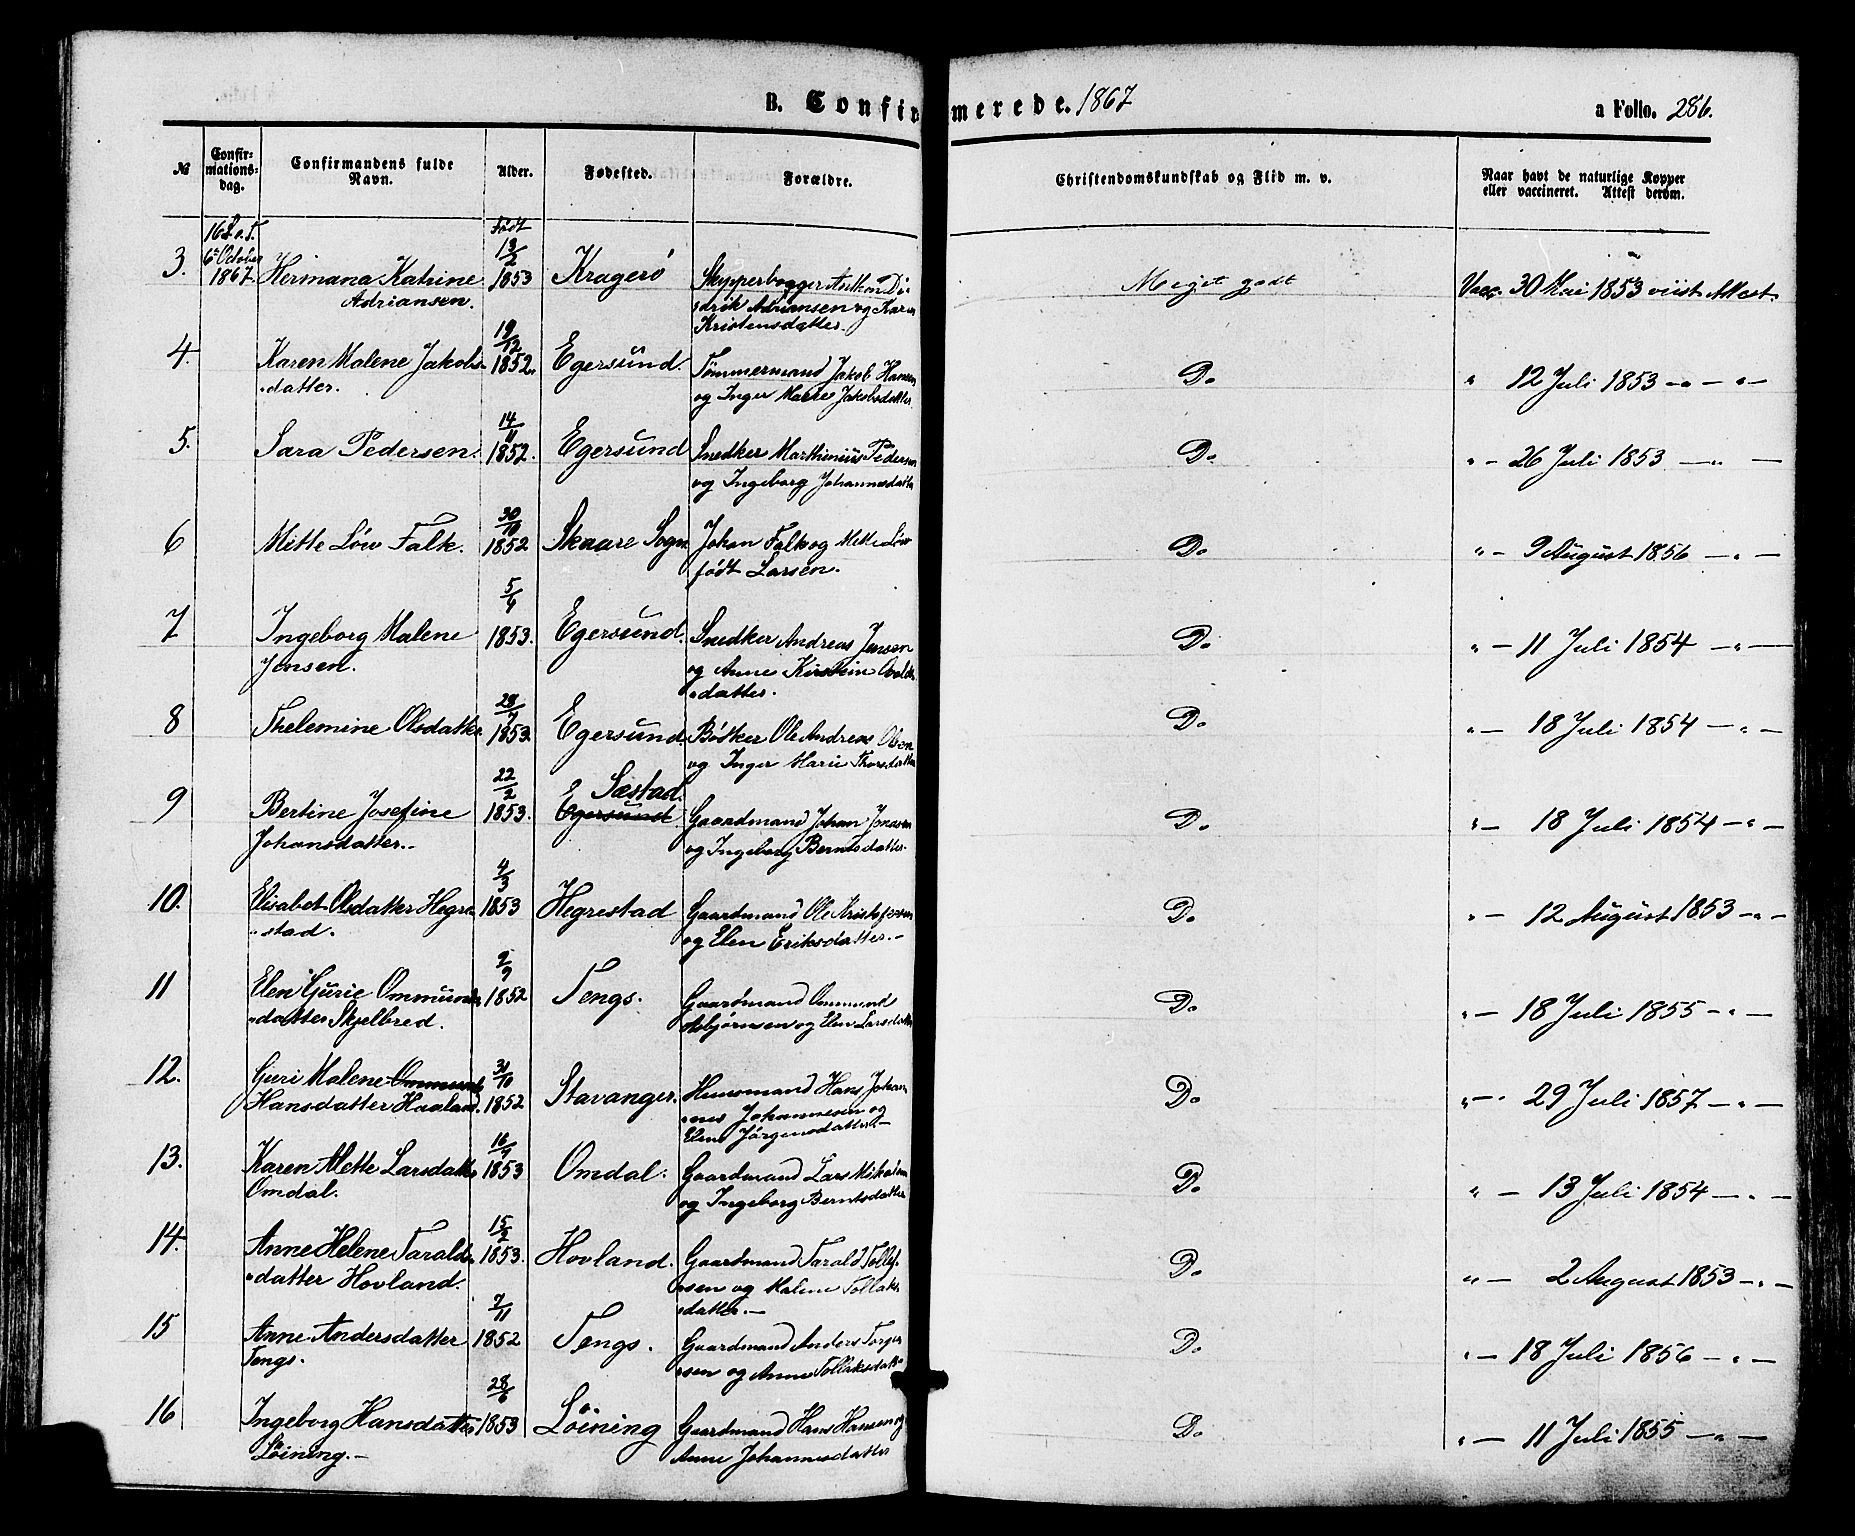 B. Confirmerede. 1867
a Folio. 286.
№
Confirmationsdag.
Confirmandens fulde Navn.
Alder.
Fødested.
Forældre.
Christendomskundskab og Flid m. v.
Naar havt de naturlige Kopper eller vaccineret. Attest derom.
16 S. e. T.
6te October
1867.
Født
3. Hermana Katrine 13/2 1853 Kragerø Skipperborger
Adriansen. Adriansen og Karen
Kristensdatter.
Meget godt
Vacc. 30 Mai 1853 viist Attest
4. Karen Malene Jakobs- 19/12 1852. Egersund. Tømmermand Jakob Hansen
datter. og Inger Marie Jakobsdatter
Do
" 12 Juli 1853 — " — " —
5. Sara Pedersen. 14/11 1852. Egersund Snedker Marthinius Pedersen
og Ingeborg Johannesdatter
Do
" — 26 Juli 1853 — " —
6 Mitte Löw Falk. 30/10 1852 Skaare Sogn Johan Falk og Mette Löw
født Larsen.
Do
" — 9 August 1856 — " —
7 Ingeborg Malene 5/4 1853. Egersund. Snedker Andreas Jensen
Jensen. og Anne Kirstein
datter.
Do
" — 11 Juli 1854 — " —
8 Thelemine Olsdatter 28/7 1853 Egersund. Bødker Ole Andreas Olsen
og Inger Marie Thorsdatter
Do
" — 18 Juli 1854 — " —
9 Bertine Josefine 22/2 1853. Sæstad. Egersund Gaardmand Johan Jonassen
Johansdatter. og Ingeborg Berntsdatter.
Do
" — 18 Juli 1854 — " —
10. Elisabet Olsdatter Hegre- 4/3 1853 Hegrestad Gaardmand Ole Kristofersen
stad. og Elen Eriksdatter. —
Do
" — 12 August 1853 — " —
11 Elen Gurie Ommunds- 9/9 1852 Tengs. Gaardmand Ommund
datter Skjelbred. Asbjørnsen og Elen Larsdatter
Do
" — 18 Juli 1855 — " —
12. Guri Malene Ommunds 30/10 1852 Stavanger. Huusmand Hans Johan-
Hansdatter Haaland. nes Johannesen og
Elene Jørgensdatter —
Do
" — 29 Juli 1857 — " —
13. Karen Mette Larsdatter 16/4 1853 Omdal. Gaardmand Lars
Omdal. og Ingeborg Berntsdatter
Do
" — 13 Juli 1854 — " —
14. Anne Helene Tarald- 15/2 1853. Hovland. Gaardmand Tarald Tollef-
datter Hovland. sen og Malene Tollaks
datter. —
Do
" — 2 August 1853 — " —
15 Anne Andersdatter 7/11 1852 Tengs. Gaardmand Anders Torger
Tengs. sen og Anne Tollaksdatter
Do
" — 18 Juli 1856 — " —
16 Ingeborg Hansdatter 28/6 1853 Löining Gaardmand Hans Hansen og
Löining. — Anne Johannesdatter
Do
" — 11 Juli 1855 — " —